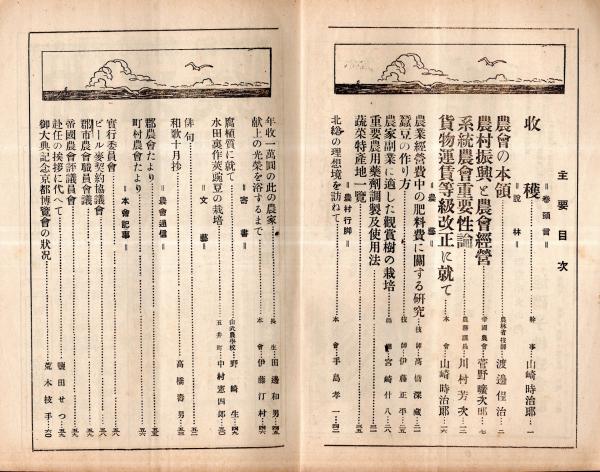 主要目次
＝卷頭言＝
收穫……幹事 山崎時治郎…一
＝說林＝
農會の本領……農林省技師 渡邊侹治…二
農村振興と農會經營……帝國農會 菅野曠次郎…七
系統農會重要性論……農務課長 川村芳次…三
貨物運賃等級改正に就て……本會 山崎時治郎…六
＝農藝＝
農業經營費中の肥料費に關する研究…技師 高橋深藏…三
蠶豆の作り方……技師 伊藤正平…五
農家副業に適した觀賞樹の栽培……宮崎什八…六
重要農用藥劑調製及使用法……三
蔬菜特產地一覽……五
＝農村行脚＝
北総の理想境を訪ねて……本會 手島孝一…四二
年收一萬圓の此の農家……長生 田邊和男…
献上の光榮を浴するまで……本會 伊藤汀村…
＝寄書＝
腐植質に就て……山武農學校 野崎生…
水田裏作莢豌豆の栽培……五井町 中村憲四郎…
＝文藝＝
俳句……高橋春男…
和歌十月抄……
＝農會通信＝
郡農會たより……
町村農會たより……
＝本會記事＝
官行委員會……
ビール麥契約協議會……
郡市農會職員會議……
帝國農會評議員會……
赴任の挨拶に代へて……鴨田せつ…
御大典記念京都博覽會の狀況……荒木枝手…